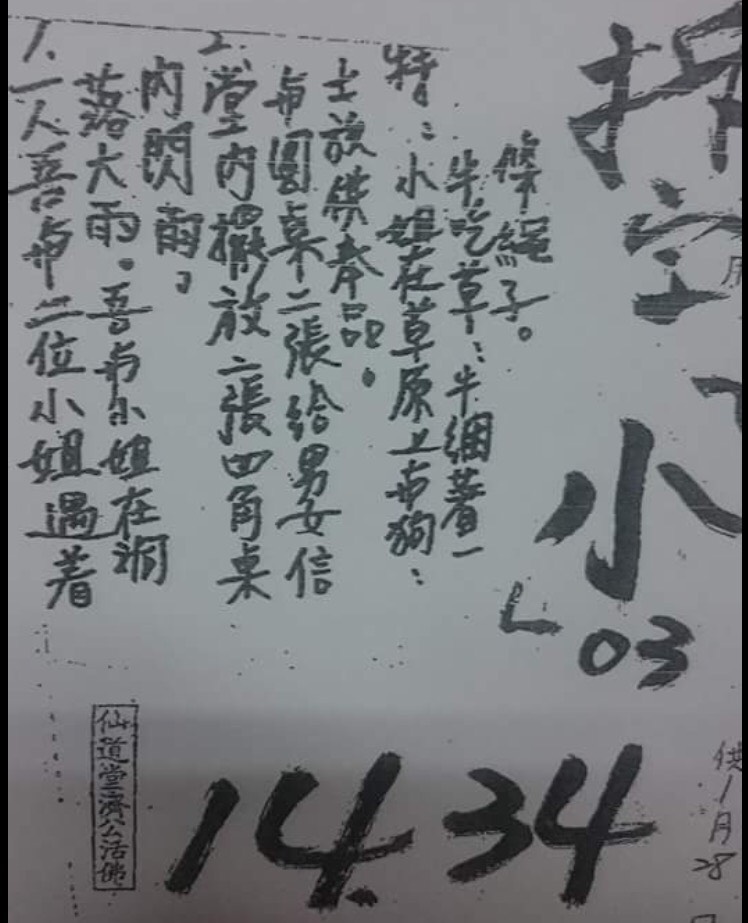 1. 一人吾与二位小姐遇着
落大雨。吾与小姐在洞
內閃雨。
2. 堂內擺放二張四角桌
与圓桌二張給男女信
士放供奉品。
特：小姐在草原上与狗：
牛吃草：牛綑著一
條繩子。
小
03
14.34
供1月28
仙道堂濟公活佛